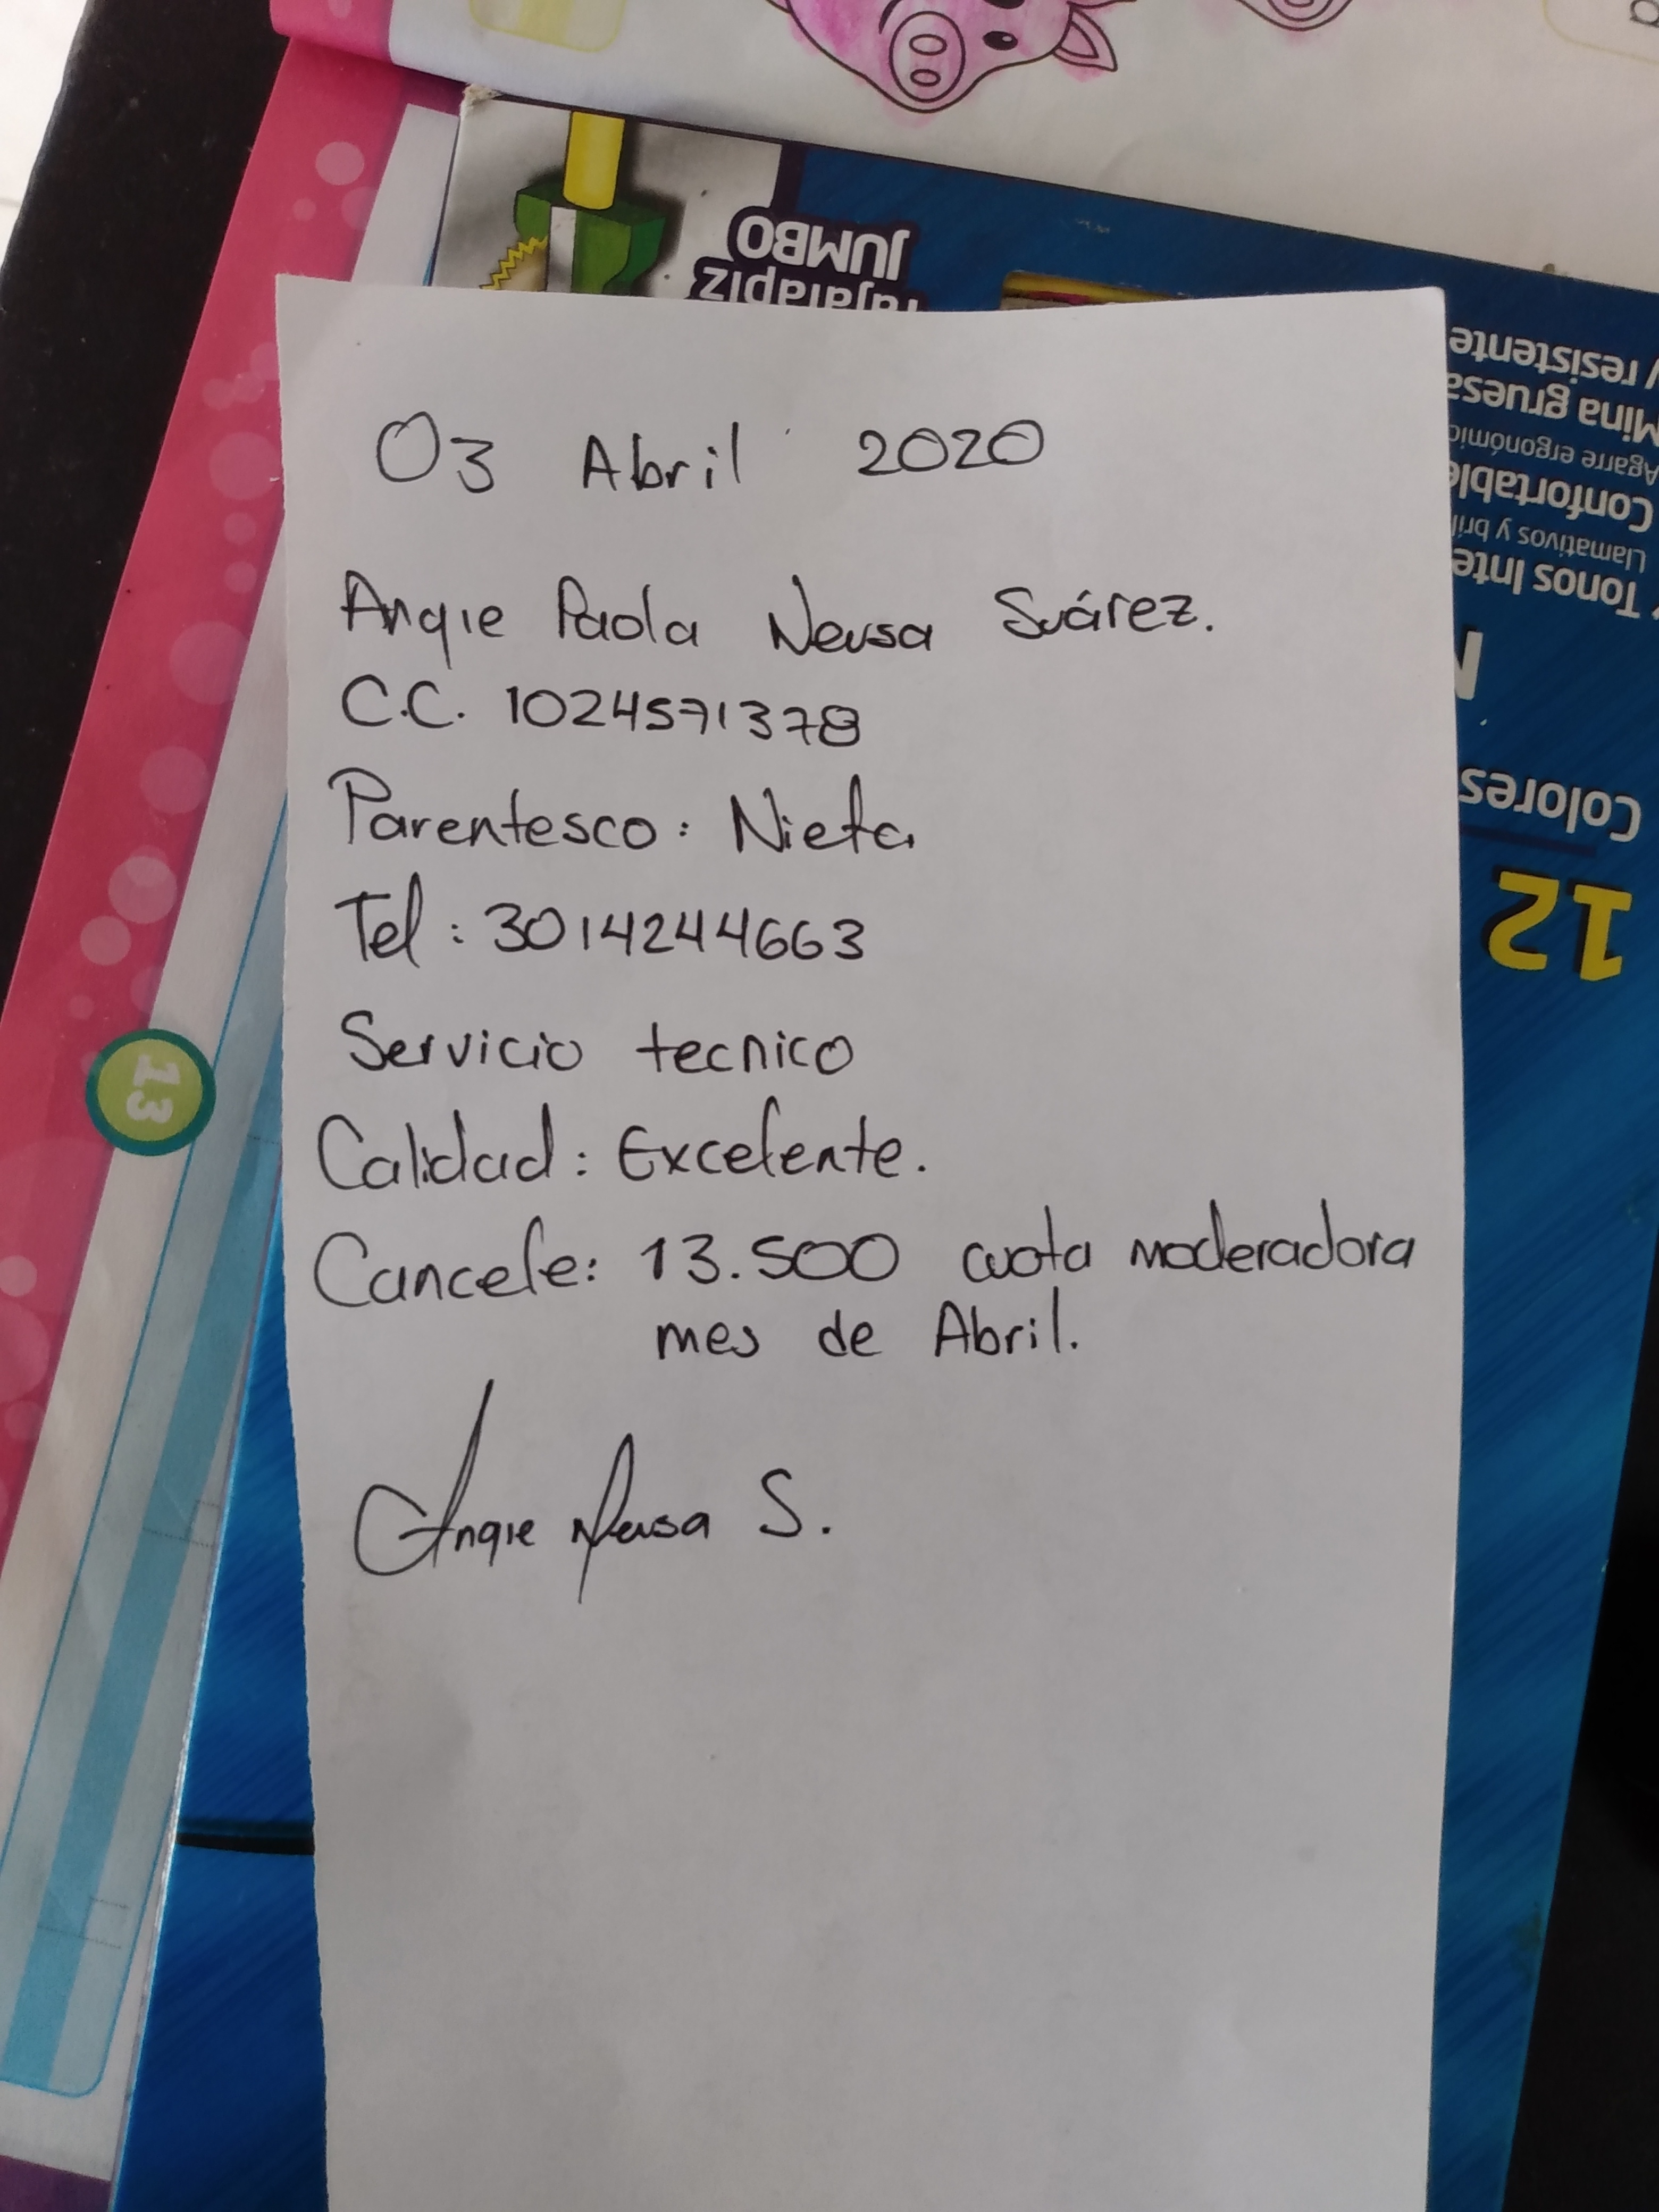 JUMBO
Tajalapiz
y resistente
Mina gruesa
Agarre ergonómic
Confortable
Llamativos y bril
Tonos Inte
N
Colores
12
13
03 Abril 2020
Angie Paola Neusa Suárez.
C.C. 1024571378
Parentesco: Nieta
Tel: 3014244663
Servicio tecnico
Calidad: Excelente.
Cancele: 13.500 cuota moderadora
mes de Abril.
Angie Neusa S.